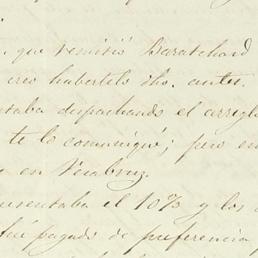 que remitió Baratchard
creo habertelo dho. antes.
taba despachando el arreglo
te lo comuniqué; pero en
en Veracruz.
esentaba el 10% y los
fué pagado de preferencia